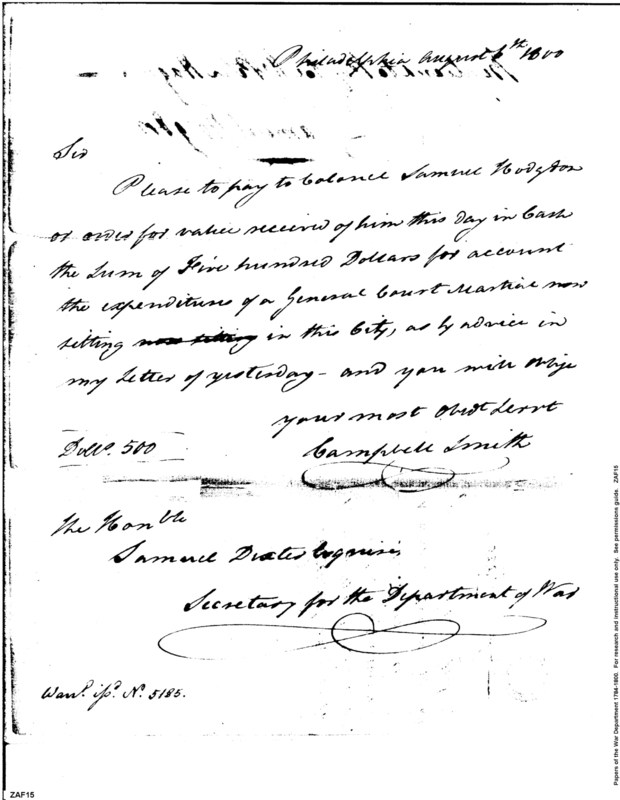 Philadelphia August 6th 1800
Sir
Please to pay to Colonel Samuel Hodgdon
or order for value received of him this day in Cash
the Sum of Five hundred Dollars for account
the expenditures of a General Court Martial now
sitting now sitting in this City, as by advice in
my Letter of yesterday - and you will oblige
your most Obedt Servt
Campbell Smith
Dolls. 500
The Honble
Samuel Dexter Esquire
Secretary for the Department of War
Warrt. issd. No. 5185.
ZAF15
Papers of the War Department 1784-1800. For research and instructional use only. See permissions guide. ZAF15